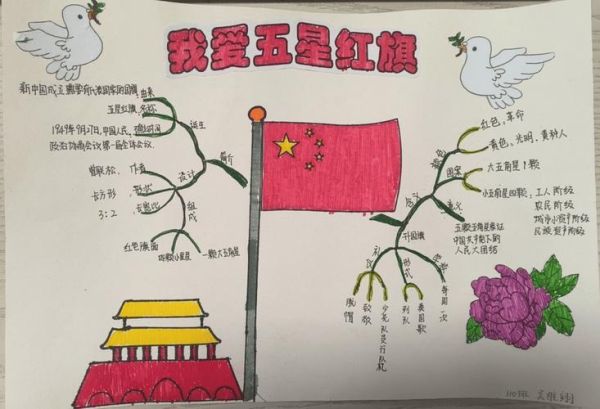 我爱五星红旗
新中国成立
由来
五星红旗
名称
1949年9月27日,中国人民
政治协商会议第一届全体会议
诞生
简介
曾联松
作者
设计
长方形
形状
3:2
长宽比
组成
红色旗面
四颗小星星
一颗大五角星
红色、革命
黄色、光明、黄种人
颜色
图案
大五角星1颗
小五角星四颗
工人阶级
农民阶级
城市小资产阶级
民族资产阶级
含义
意义
五颗五角星象征
中国共产党下的
人民大团结
升国旗
礼仪
形式
脱帽
敬礼
少先队员行队礼
列队
奏国歌
每周一次